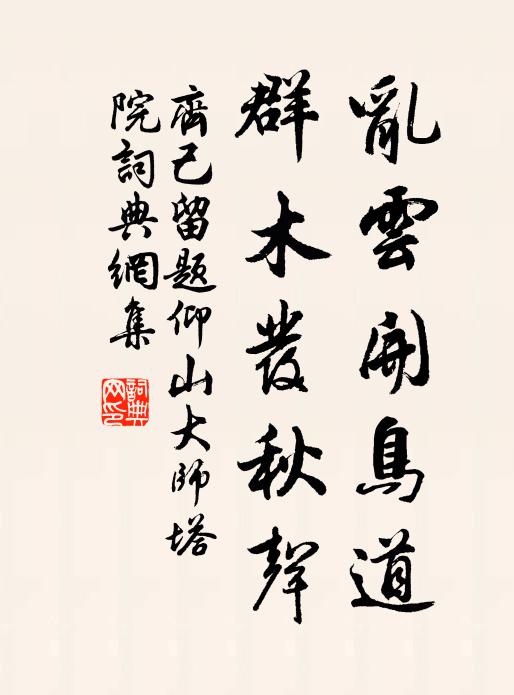 亂雲開鳥道
群木發秋聲
齊己留題仰山大師塔
院詞典網集
詞典
网印